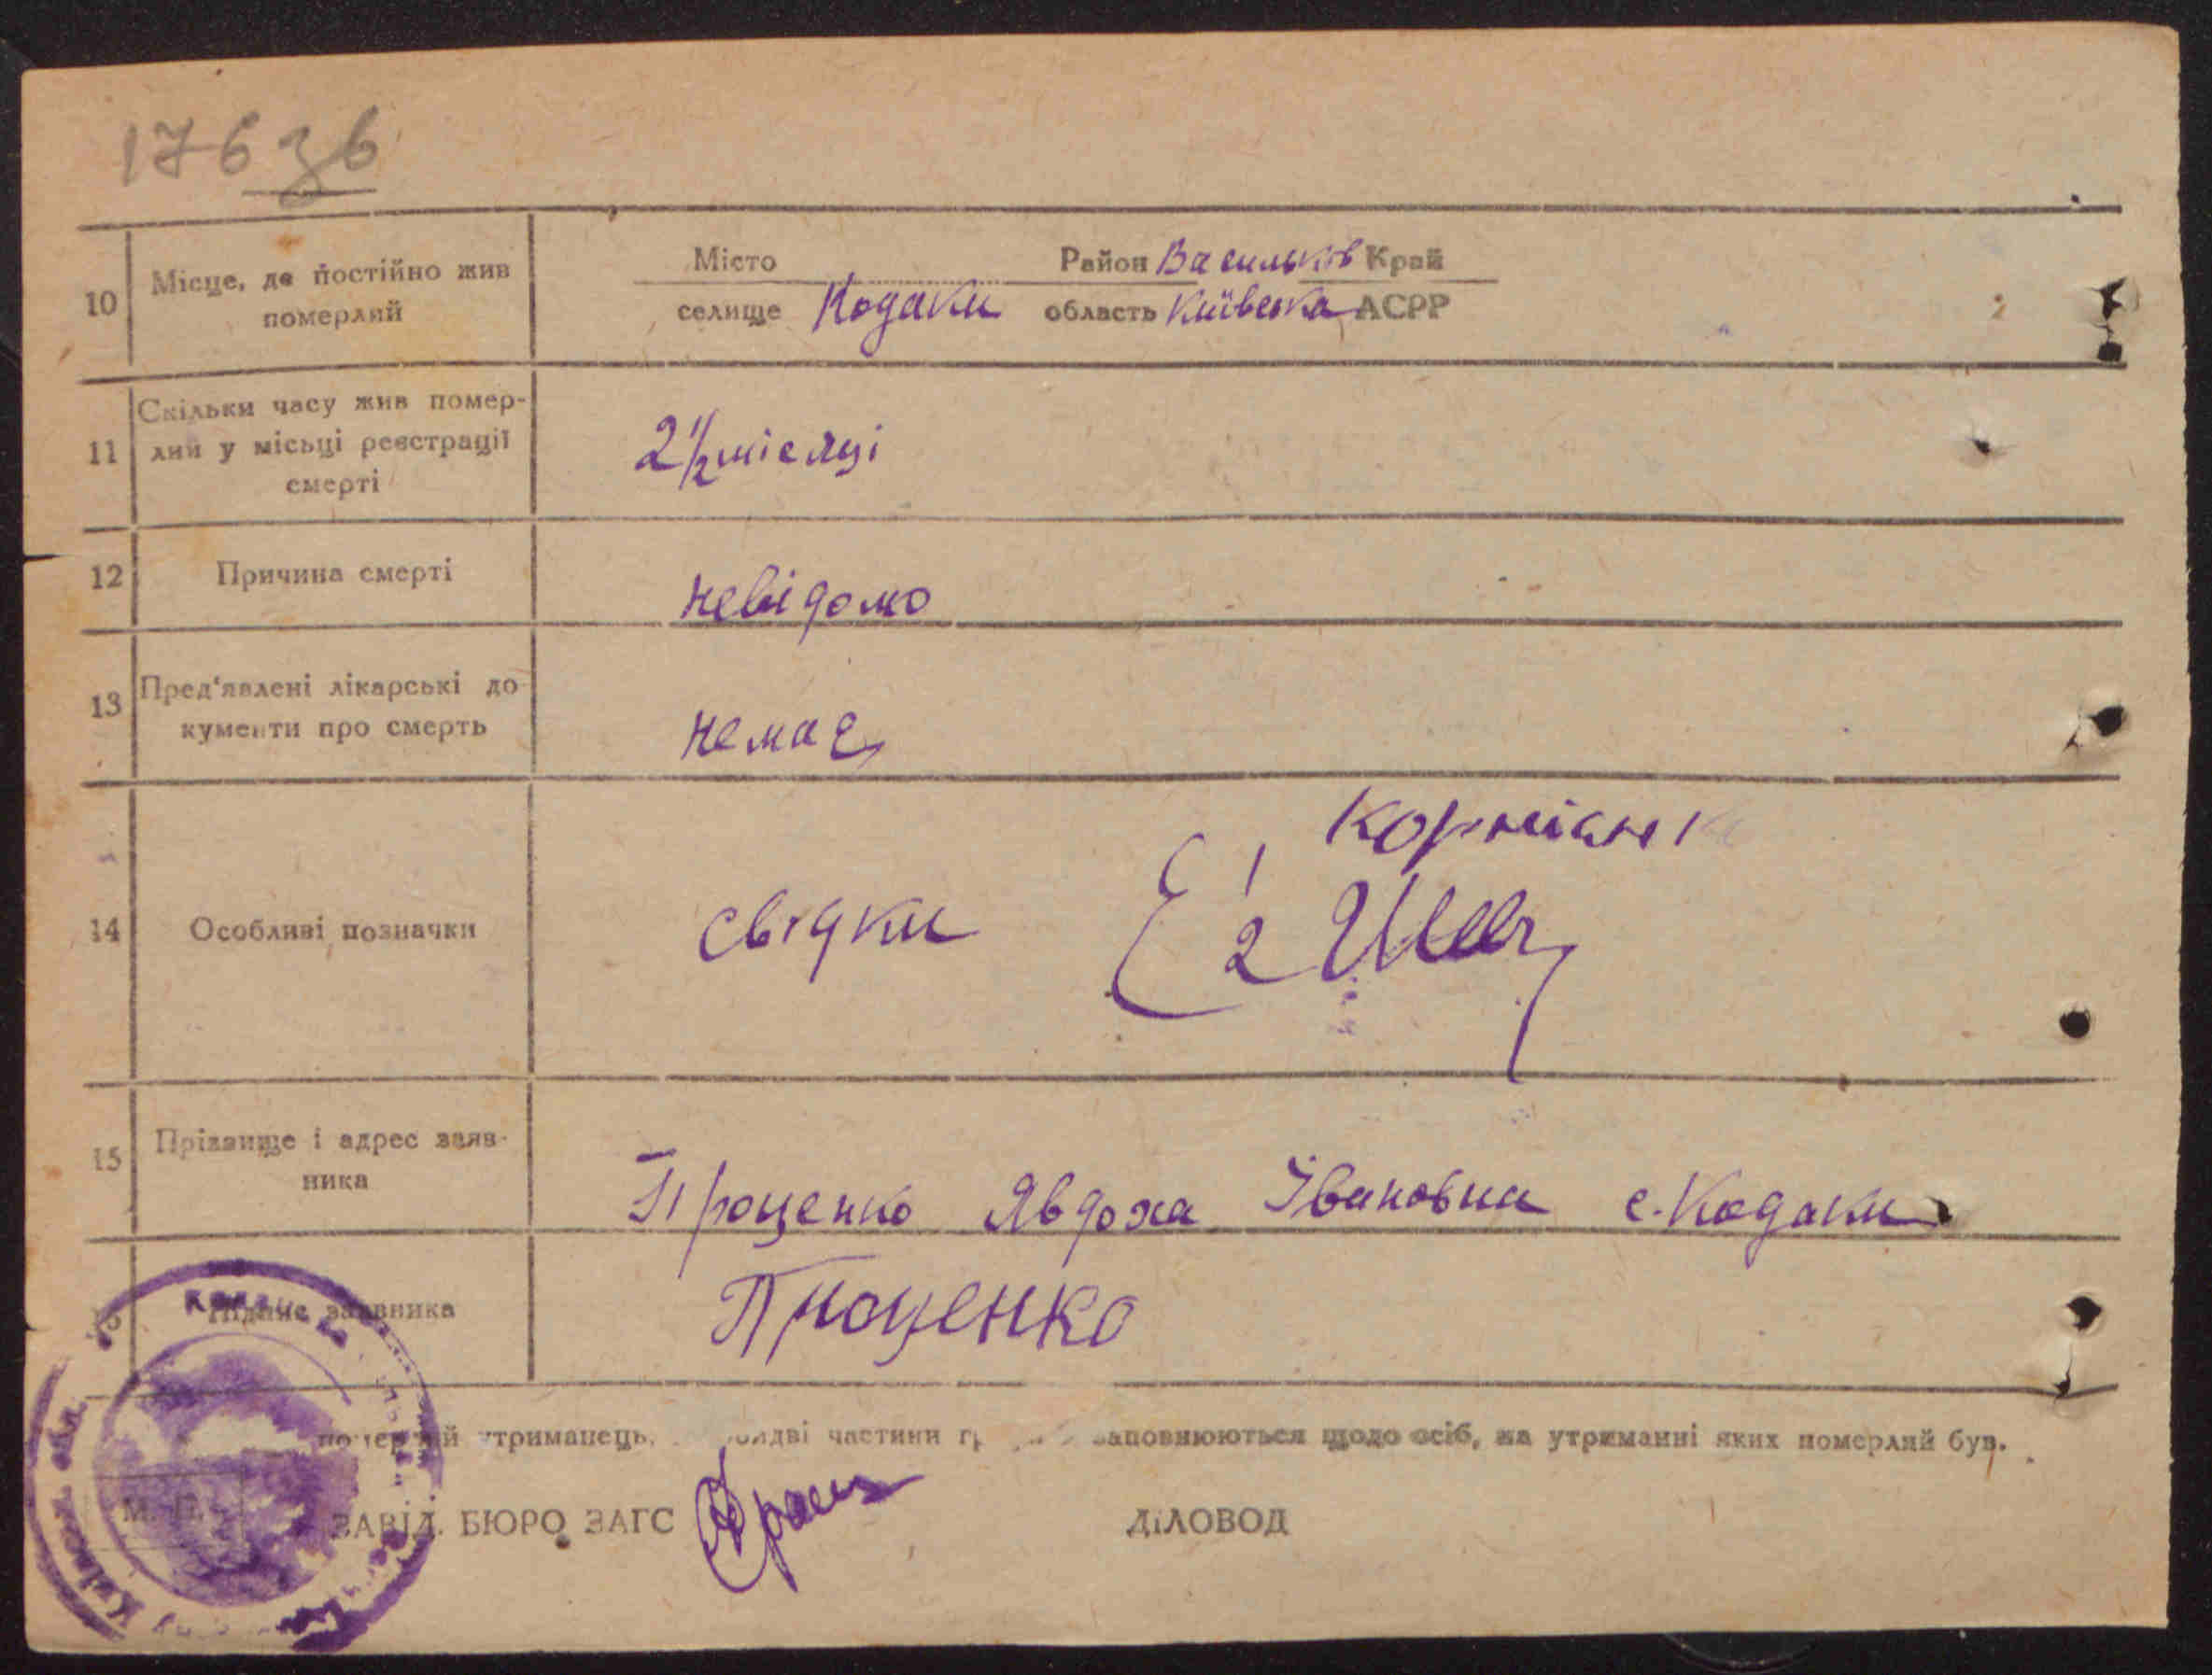 176 зв
10 Місце, де постійно жив померлий
Місто Район Васильків Край
селище Кодаки область Київська АСРР
11 Скільки часу жив помер-
лий у місьці реєстрації
смерті
2 1/2 місяці
12 Причина смерті невідомо
13 Пред'явлені лікарські до
кументи про смерть
немає
14 Особливі позначки свідки
1
2
15 Прізвище і адрес заяв-
ника
Проценко Явдоха Івановна с. Кодаки
Підпис заявника Проценко
померлий утриманець. частини заповнюються щодо осіб, на утриманні яких померлий був.
М. П. ЗАВІД. БЮРО ЗАГС ДІЛОВОД